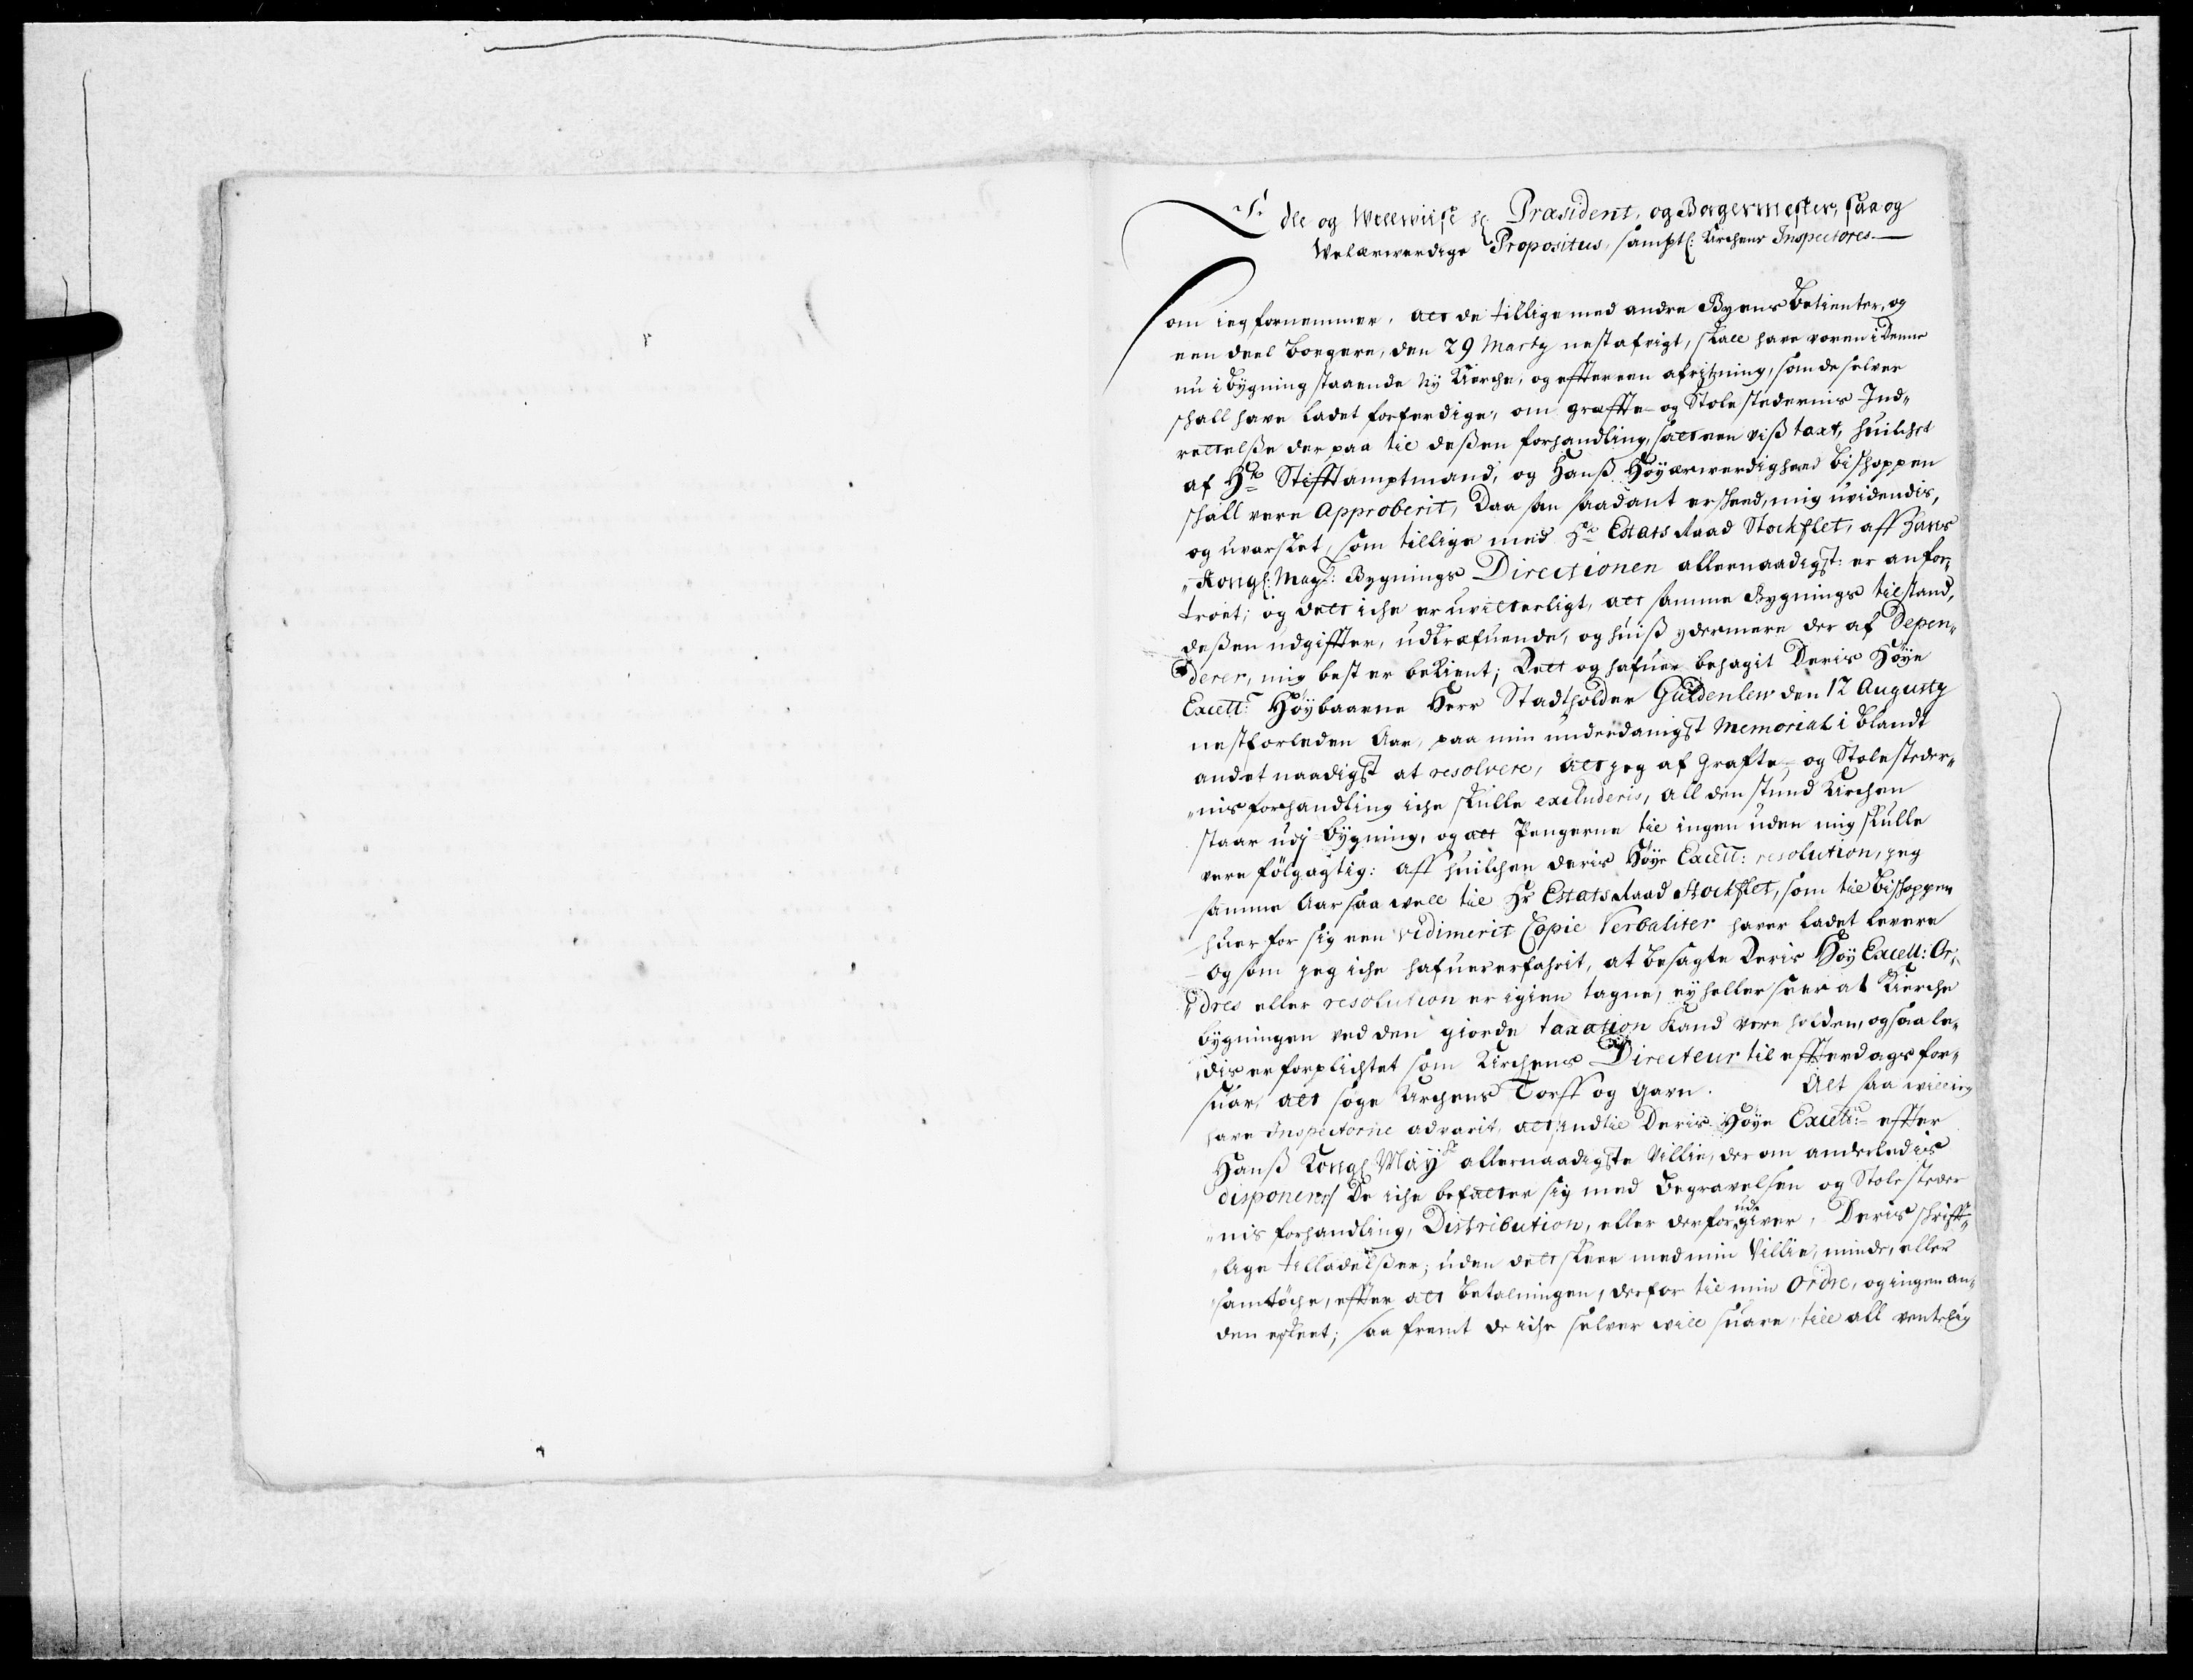 Edle og Welwiise H: Præsident, og Borgermester, saa og
Welærwerdige Propositus, samptl: Kirchens Inspectores
Som ieg fornemmer, att de tillige med andre Byens Betienter, og
een deel Borgere, den 29 Marty nestafvigt, skall have veren i denne
nu i bygning staaende Ny Kierche, og effter een afritzning, som de selver
shall have ladet forferdige, om graffte- og Stolestedernis Ind„
rettelße der paa til deßen forhandling, satt een viß taxt, huilchet
af Hr Stifftamptmand, og Hanß Höyærwerdigheed bishoppen
shall vere Approberit, Daa saa saadant er skeed, mig uvidendis,
og uvarslet, som tillige med Hr Estats Raad Stockflet, aff Hans
Kongl: Mayt: Bygnings Directionen allernaadigst: er anfor„
troet; og dett iche er uvitterligt, att samme Bygnings tilstand,
deßen udgiffter, udkræfuende, og huiß ydermere der af Depen„
derer, mig best er bekient; Dett og hafuer behagit Deris Höye
Excell: Höybaarne Herr Stadtholder Güldenlew den 12 Augusty
nestforleden Aar, paa min underdanigst Memorial i blandt
andet naadigst at resolvere, att jeg af Grafte- og Stolesteder„
„nis forhandling iche skulle excluderis, all den stund Kirchen
staar udj bygning, og att Pengerne til ingen uden mig skulle
vere fölgagtig: aff huilchen deris Höye Excell: resolution, jeg
samme Aar saa well til Hr Estats Raad Stockflet, som til Bishoppen
huer for sig een vidimerit Copie Verbaliter haver ladet levere
Og som jeg iche hafuer erfahrit, at besagte Deris Höy Excell: Or„
„dres eller resolution er igien tagne, ey heller seer at Kierche
bygningen ved den giorde taxation kand vere holden, og saa le„
„dis er forplichtet som Kirchens Directeur til effterdags for„
suar, att söge Kirchens Torff og Gavn. Alt saa will ieg
have Inspectorne advarit, att indtil Deris Höye Excell: effter
Hanß Kongl May:tz allernaadigste Villie, der om anderledis
disponerer De iche befatter sig med begravelsen og Stolesteder
„nis forhandling, Distribution, eller derfor udgiver, Deris schrifft„
„lige tilladelßer; uden dett skeer med min Villie, minde, eller
samtöche, effter att betalningen, derfor til min Ordre, og ingen an„
den er skeet; saa fremt de iche selver will suare till all ventelig